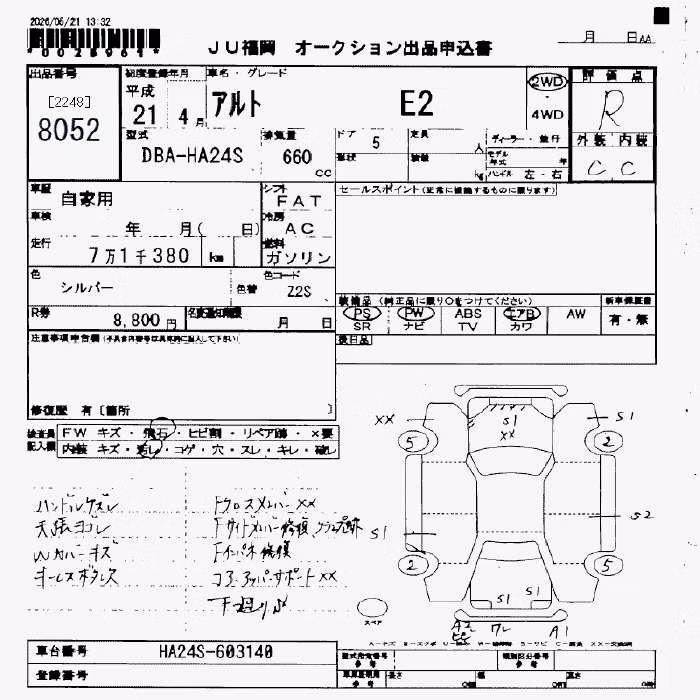 2026/06/21 13:32
*0028964*
JU福岡 オークション出品申込書
月 日AA
出品番号
[2248]
8052
初度登録年月
平成
21 4月
車名・グレード
アルト E2
2WD
・
4WD
評価点
R
型式
DBA-HA24S
排気量
660
cc
ドア 5
形状
定員
人
積載
kg
ディーラー・並行
モデル年式 年
ハンドル 左・右
外装 内装
C C
車歴
自家用
車検
年 月( 日)
走行
7万1千380 km
シフト
FAT
冷房
AC
燃料
ガソリン
セールスポイント(正常に機能するものに限ります)
色
シルバー
色替
色コード
Z2S
R券
8,800円
名変通知期限
月 日
装備品(純正品に限り○をつけてください)
PS PW ABS エアB AW
SR ナビ TV カワ
新車保証書
有・無
後日品
注意事項申告欄
修復歴 有[箇所 ]
検査員記入欄
FW キズ・飛石・ヒビ割・リペア跡・×要
内装 キズ・汚レ・コゲ・穴・スレ・キレ・破レ
ハンドルケズレ
天張ヨゴレ
W/カバーキズ
キーレスボタンレス
FクロスメンバーXX
Fサイドメンバー修復
Fインパネ修復
コアアッパーサポートXX
XX
S1
XX
S1
5
2
S1
S2
2
5
S1 S1
A2 ワレ A1
スペア
車台番号
HA24S-603140
登録番号
型式指定番号
参考
類別区分番号
参考
長さ
幅
高さ